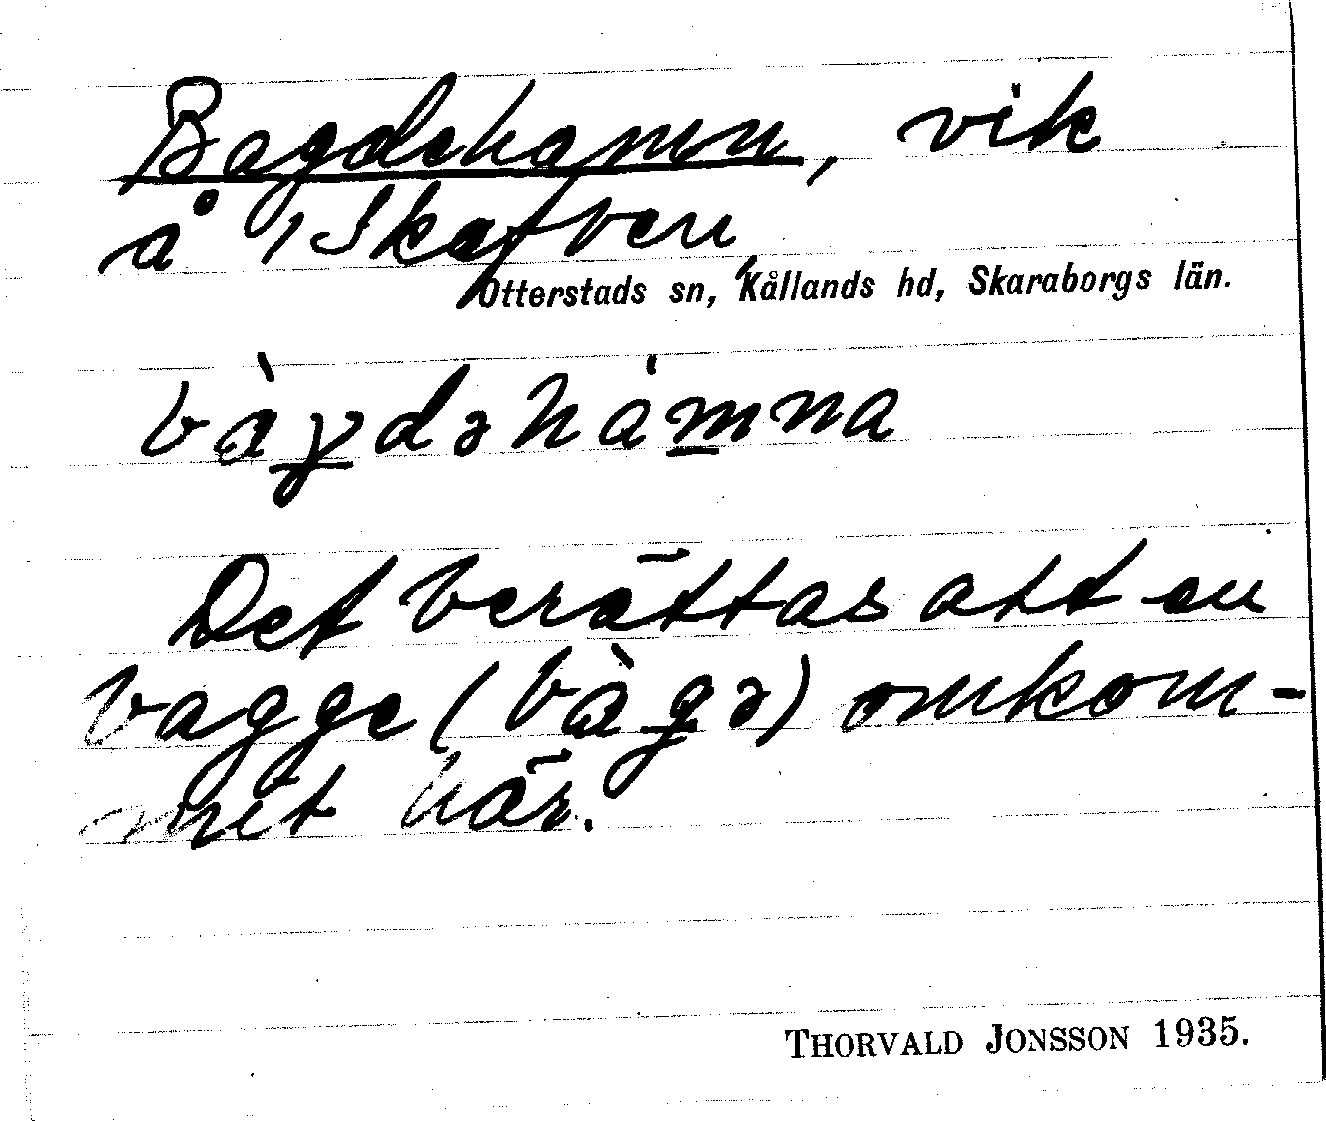 Bagdehamn, vik
å 1 Skafven,
Otterstads sn, Kållands hd, Skaraborgs län.
bàɣdəhámna
Det berättas att en
bagge (bàgə) omkom-
mit här.
THORVALD JONSSON 1935.